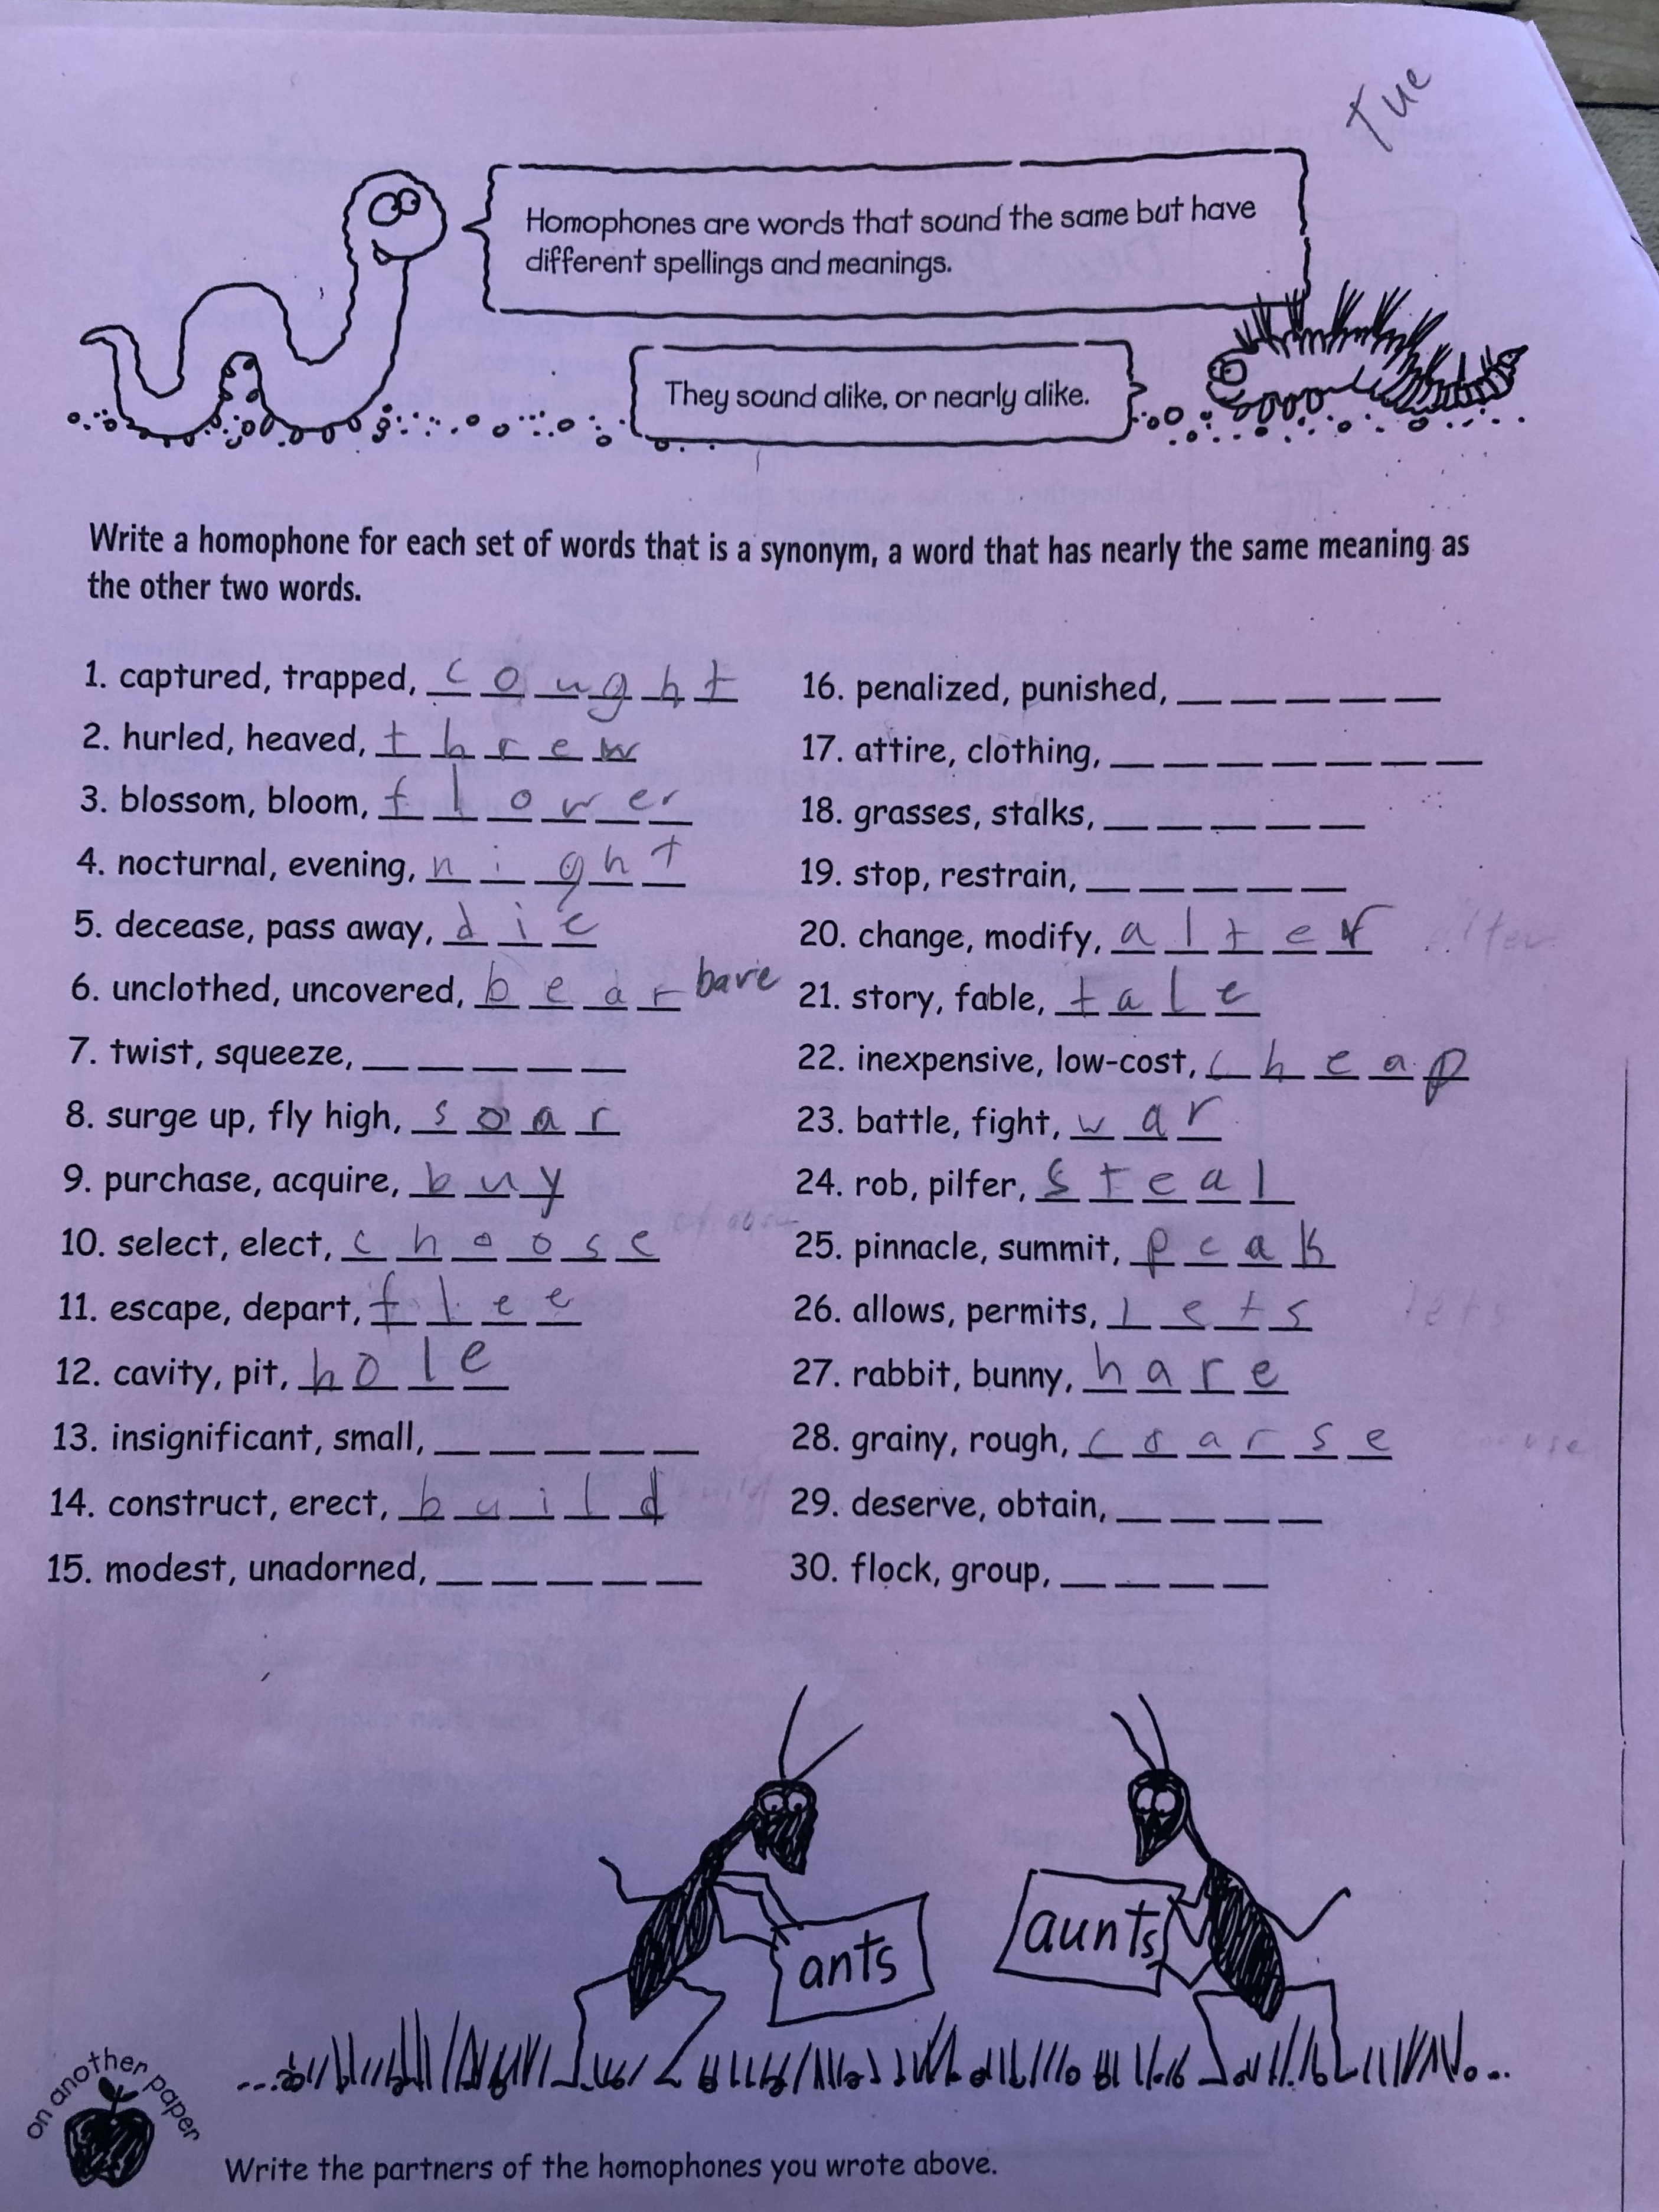 Tue
Homophones are words that sound the same but have
different spellings and meanings.
They sound alike, or nearly alike.
Write a homophone for each set of words that is a synonym, a word that has nearly the same meaning as
the other two words.
1. captured, trapped, cought
2. hurled, heaved, threw
3. blossom, bloom, flower
4. nocturnal, evening, night
5. decease, pass away, die
6. unclothed, uncovered, bear bare
7. twist, squeeze, _ _ _ _ _
8. surge up, fly high, soar
9. purchase, acquire, buy
10. select, elect, choose
11. escape, depart, flee
12. cavity, pit, hole
13. insignificant, small, _ _ _ _ _
14. construct, erect, build
15. modest, unadorned, _ _ _ _ _
16. penalized, punished, _ _ _ _ _
17. attire, clothing, _ _ _ _ _ _ _
18. grasses, stalks, _ _ _ _ _
19. stop, restrain, _ _ _ _ _
20. change, modify, alter
21. story, fable, tale
22. inexpensive, low-cost, cheap
23. battle, fight, war
24. rob, pilfer, steal
25. pinnacle, summit, peak
26. allows, permits, lets
27. rabbit, bunny, hare
28. grainy, rough, coarse
29. deserve, obtain, _ _ _ _
30. flock, group, _ _ _ _
ants
aunts
on another paper
Write the partners of the homophones you wrote above.